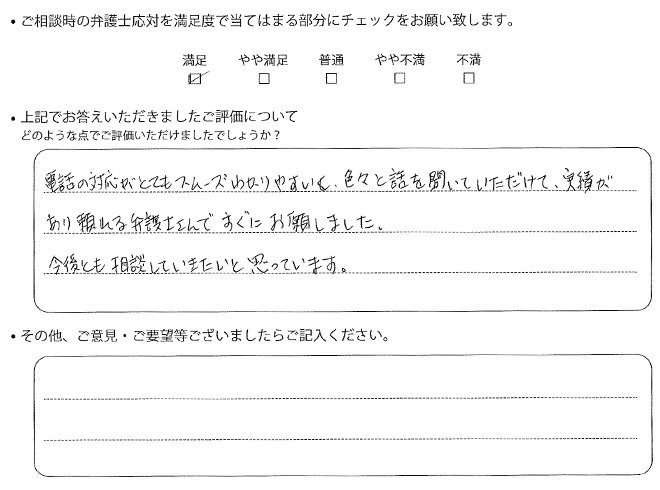 ・ご相談時の弁護士応対を満足度で当てはまる部分にチェックをお願い致します。
満足 やや満足 普通 やや不満 不満
・上記でお答えいただきましたご評価について
どのような点でご評価いただけましたでしょうか？
電話の対応がとてもスムーズわかりやすいし、色々と話を聞いていただけて、実績が
あり頼れる弁護士さんですぐにお願しました。
今後とも相談していきたいと思っています。
・その他、ご意見・ご要望等ございましたらご記入ください。